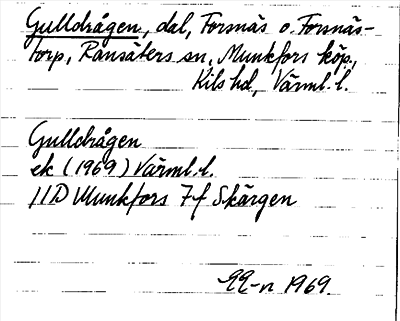 Gulldrågen, dal, Forsnäs o. Forsnäs-
torp, Ransäters sn, Munkfors köp.,
Kils hd, Värml. l.
Gulldrågen
ek (1969) Värml. l.
11D Munkfors 7f Skärgen
1969.